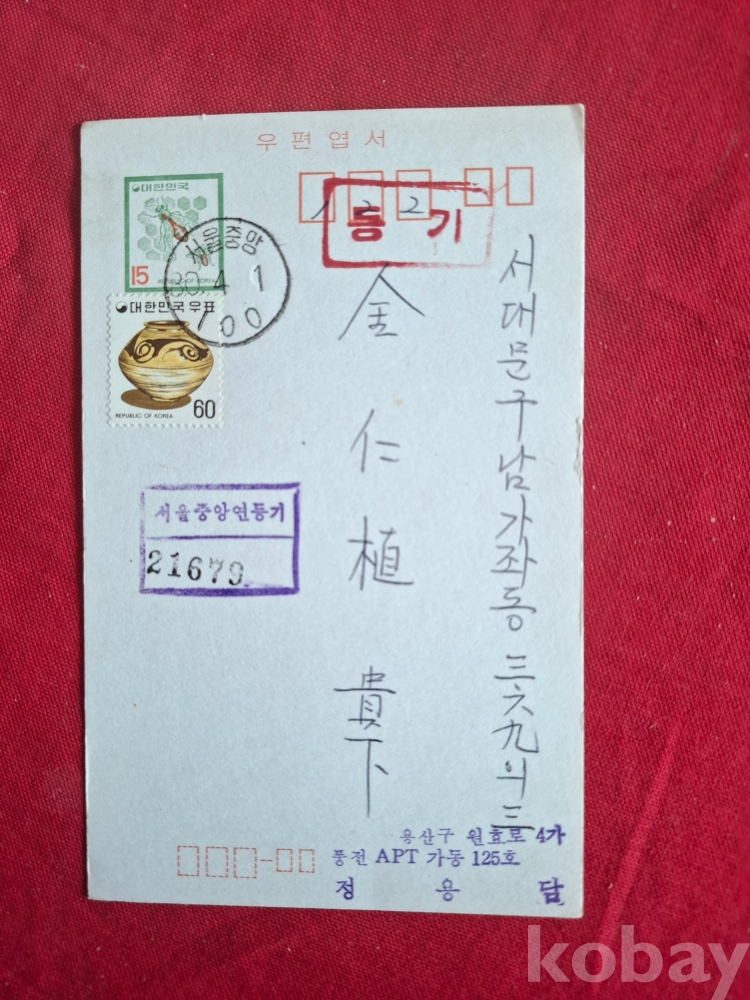 우편엽서
대한민국
15
REPUBLIC OF KOREA
서울중앙
80.4.1
100
대한민국우표
60
REPUBLIC OF KOREA
등기
1 2 2
서대문구 남가좌동 三六九의 三
金仁植 貴下
서울중앙연등기
21679
용산구 원효로 4가
풍전 APT 가동 125호
정용담
kobay